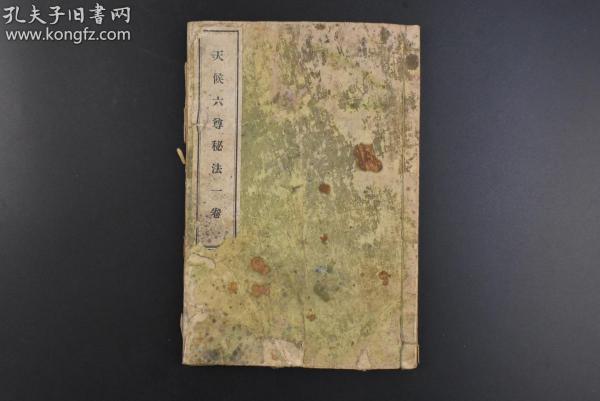 孔夫子旧书网
www.kongfz.com
天候六尊秘法一卷